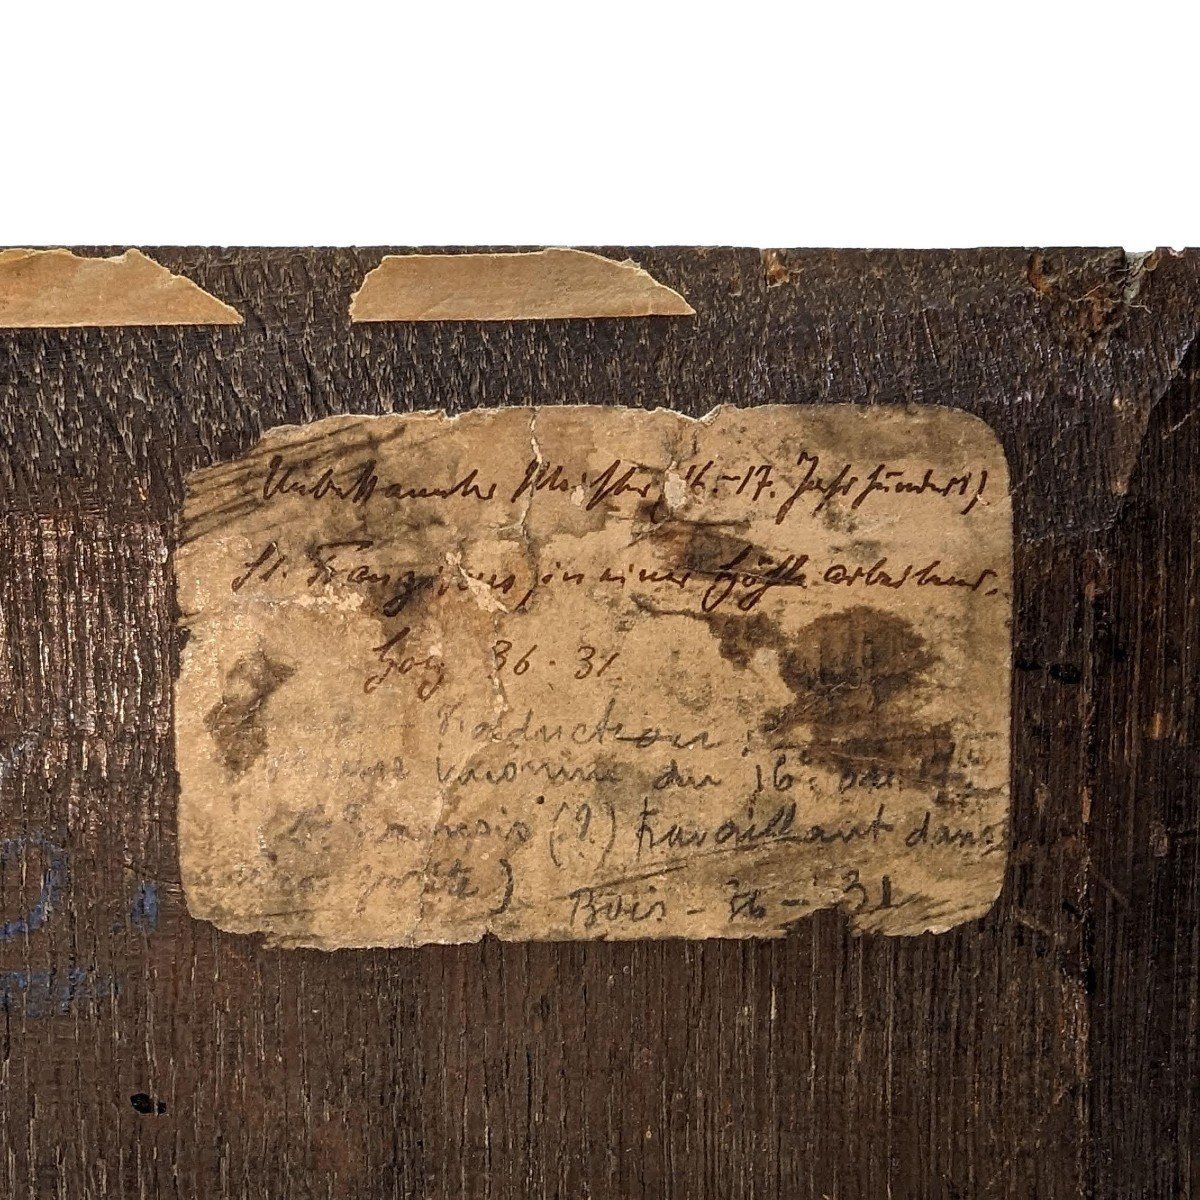 Unbekannter Meister 16.-17. Jahrhundert)
St. Franziskus, in einer Höhle arbeitend.
Holz 36 · 31
Traduction :
anonyme du 16e ou
St François (?) travaillant dans
grotte) Bois - 36 - 31